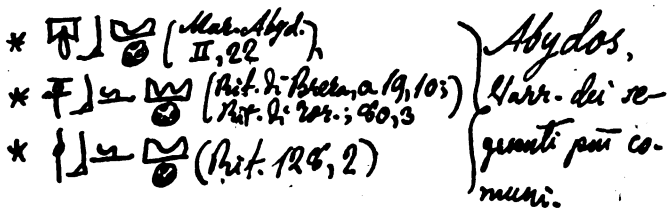 * (Mar. Abyd.
II, 22)
* (Rit. di Brera, a 19, 10;
Rit. di Tor.; 80, 3)
* (Rit. 128, 2)
Abydos,
Varr. dei se-
guenti più co-
muni.